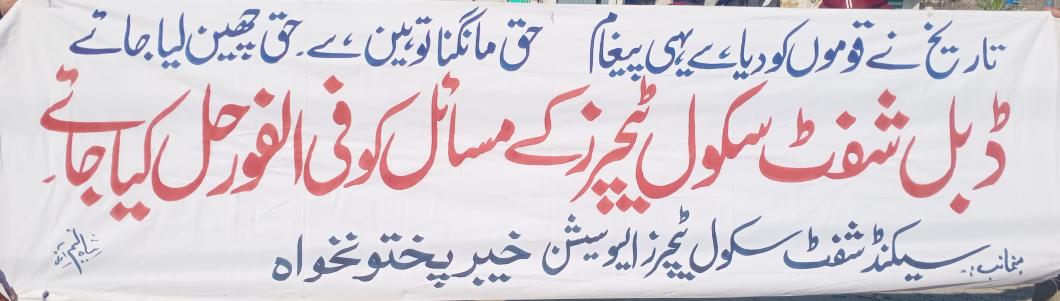 تاریخ نے قوموں کو دیا ہے یہی پیغام حق مانگنا توہین ہے۔ حق چھین لیا جائے
ڈبل شفٹ سکول ٹیچرز کے مسائل کو فی الفور حل کیا جائے۔
منجانب:۔ سیکنڈ شفٹ سکول ٹیچرز ایسوسیشن خیبر پختونخواہ